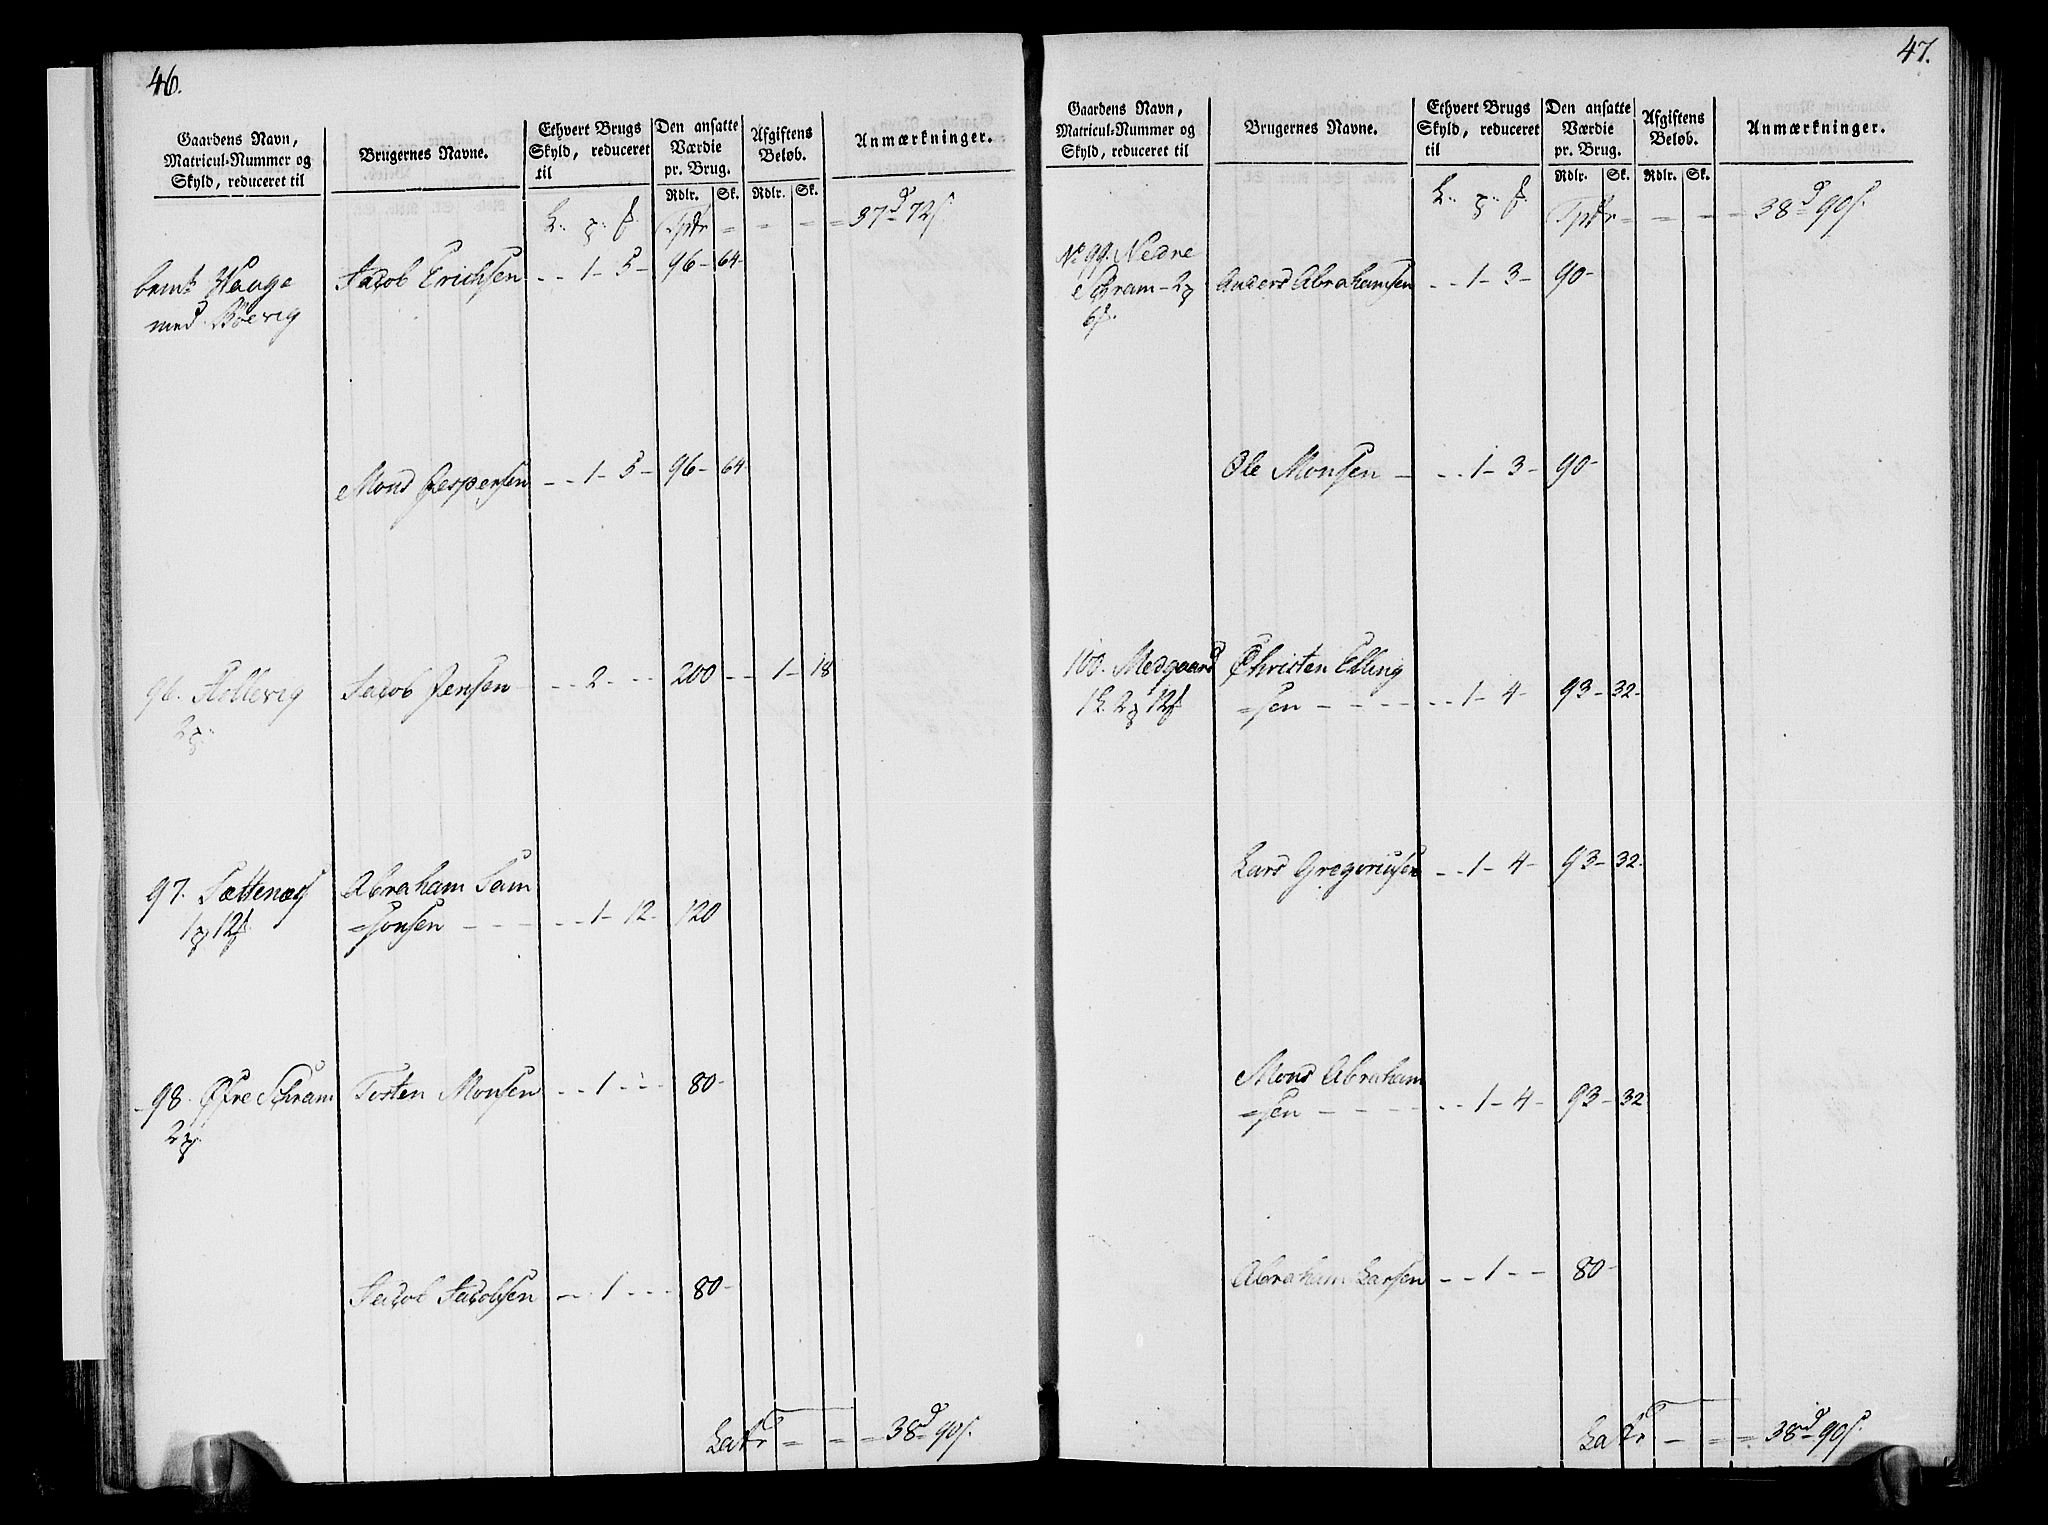 46.
Gaardens Navn,
Matricul-Nummer og
Skyld, reduceret til
Brugernes Navne.
Ethvert Brugs
Skyld, reduceret
til
Den ansatte
Værdie
pr. Brug.
Rdlr. Sk.
Afgiftens
Beløb.
Rdlr. Sk.
Anmærkninger.
Tpr = - - = 37 d 72 s.
Jacob Erichsen - - 1 - 5 - 96 - 64
Mons Jespersen - - 1 - 5 - 96 - 64
96. Jacob Jensen - - 2 - - - 200 - - 1 - 18
2
97. Sættenæs Abraham Sam
1 12 =sonsen - - - - 1 - 12 - 120
98. Øfre Schram Torten Monsen - - 1 - - - 80 -
2
Jacob Jacobsen - - 1 - - - 80 -
Latr = = = 38 d 90 s.
47.
Gaardens Navn,
Matricul-Nummer og
Skyld, reduceret til
Brugernes Navne.
Ethvert Brugs
Skyld, reduceret
til
Den ansatte
Værdie
pr. Brug.
Rdlr. Sk.
Afgiftens
Beløb.
Rdlr. Sk.
Anmærkninger.
Tpr = - - - 38 d 90 s.
No 99. Nedre
Schram - 2 Anders Abrahamsen - - 1 - 3 - 90 -
6
Ole Monsen - - - 1 - 3 - 90 -
100. Medgaard Christen Elling
1 L. 2 12 =sen - - - - - - 1 - 4 - 93 - 32 -
Lars Gregeriusen - - 1 - 4 - 93 - 32 -
Mons Abraham
=sen - - - - - - 1 - 4 - 93 - 32
Abraham Larsen - - 1 - - 80 -
Latr - = = 38 d 90 s.